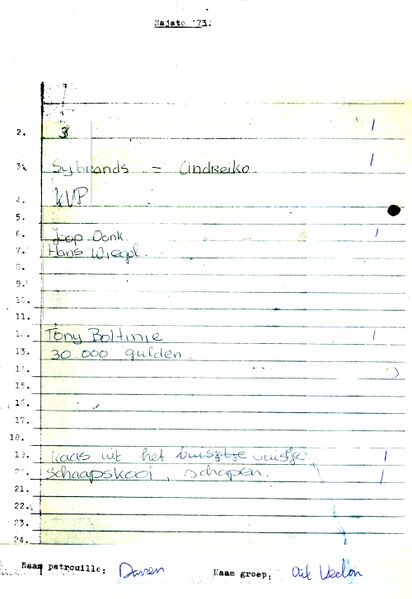 Majato '73.
2. 3 1
3. Sybrands = Andreiko. 1
4. KVP
5.
6. Joop Donk 1
7. Hans Wiegel.
8.
9.
10.
11.
12. Tony Boltinie 1
13. 30 000 gulden.
14.
15.
16.
17.
18.
19. kaas uit het vuistje 1
20. Schaapskooi, schapen. 1
21.
22.
23.
24.
Naam patrouille: Naam groep: